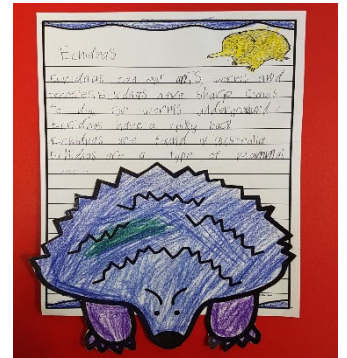 Echidnas
Echidnas can eat ants, worms and
have sharp claws
to dig for worms underground
Echidnas have a spiky back
Echidnas are found in Australia
Echidnas are a type of mammal